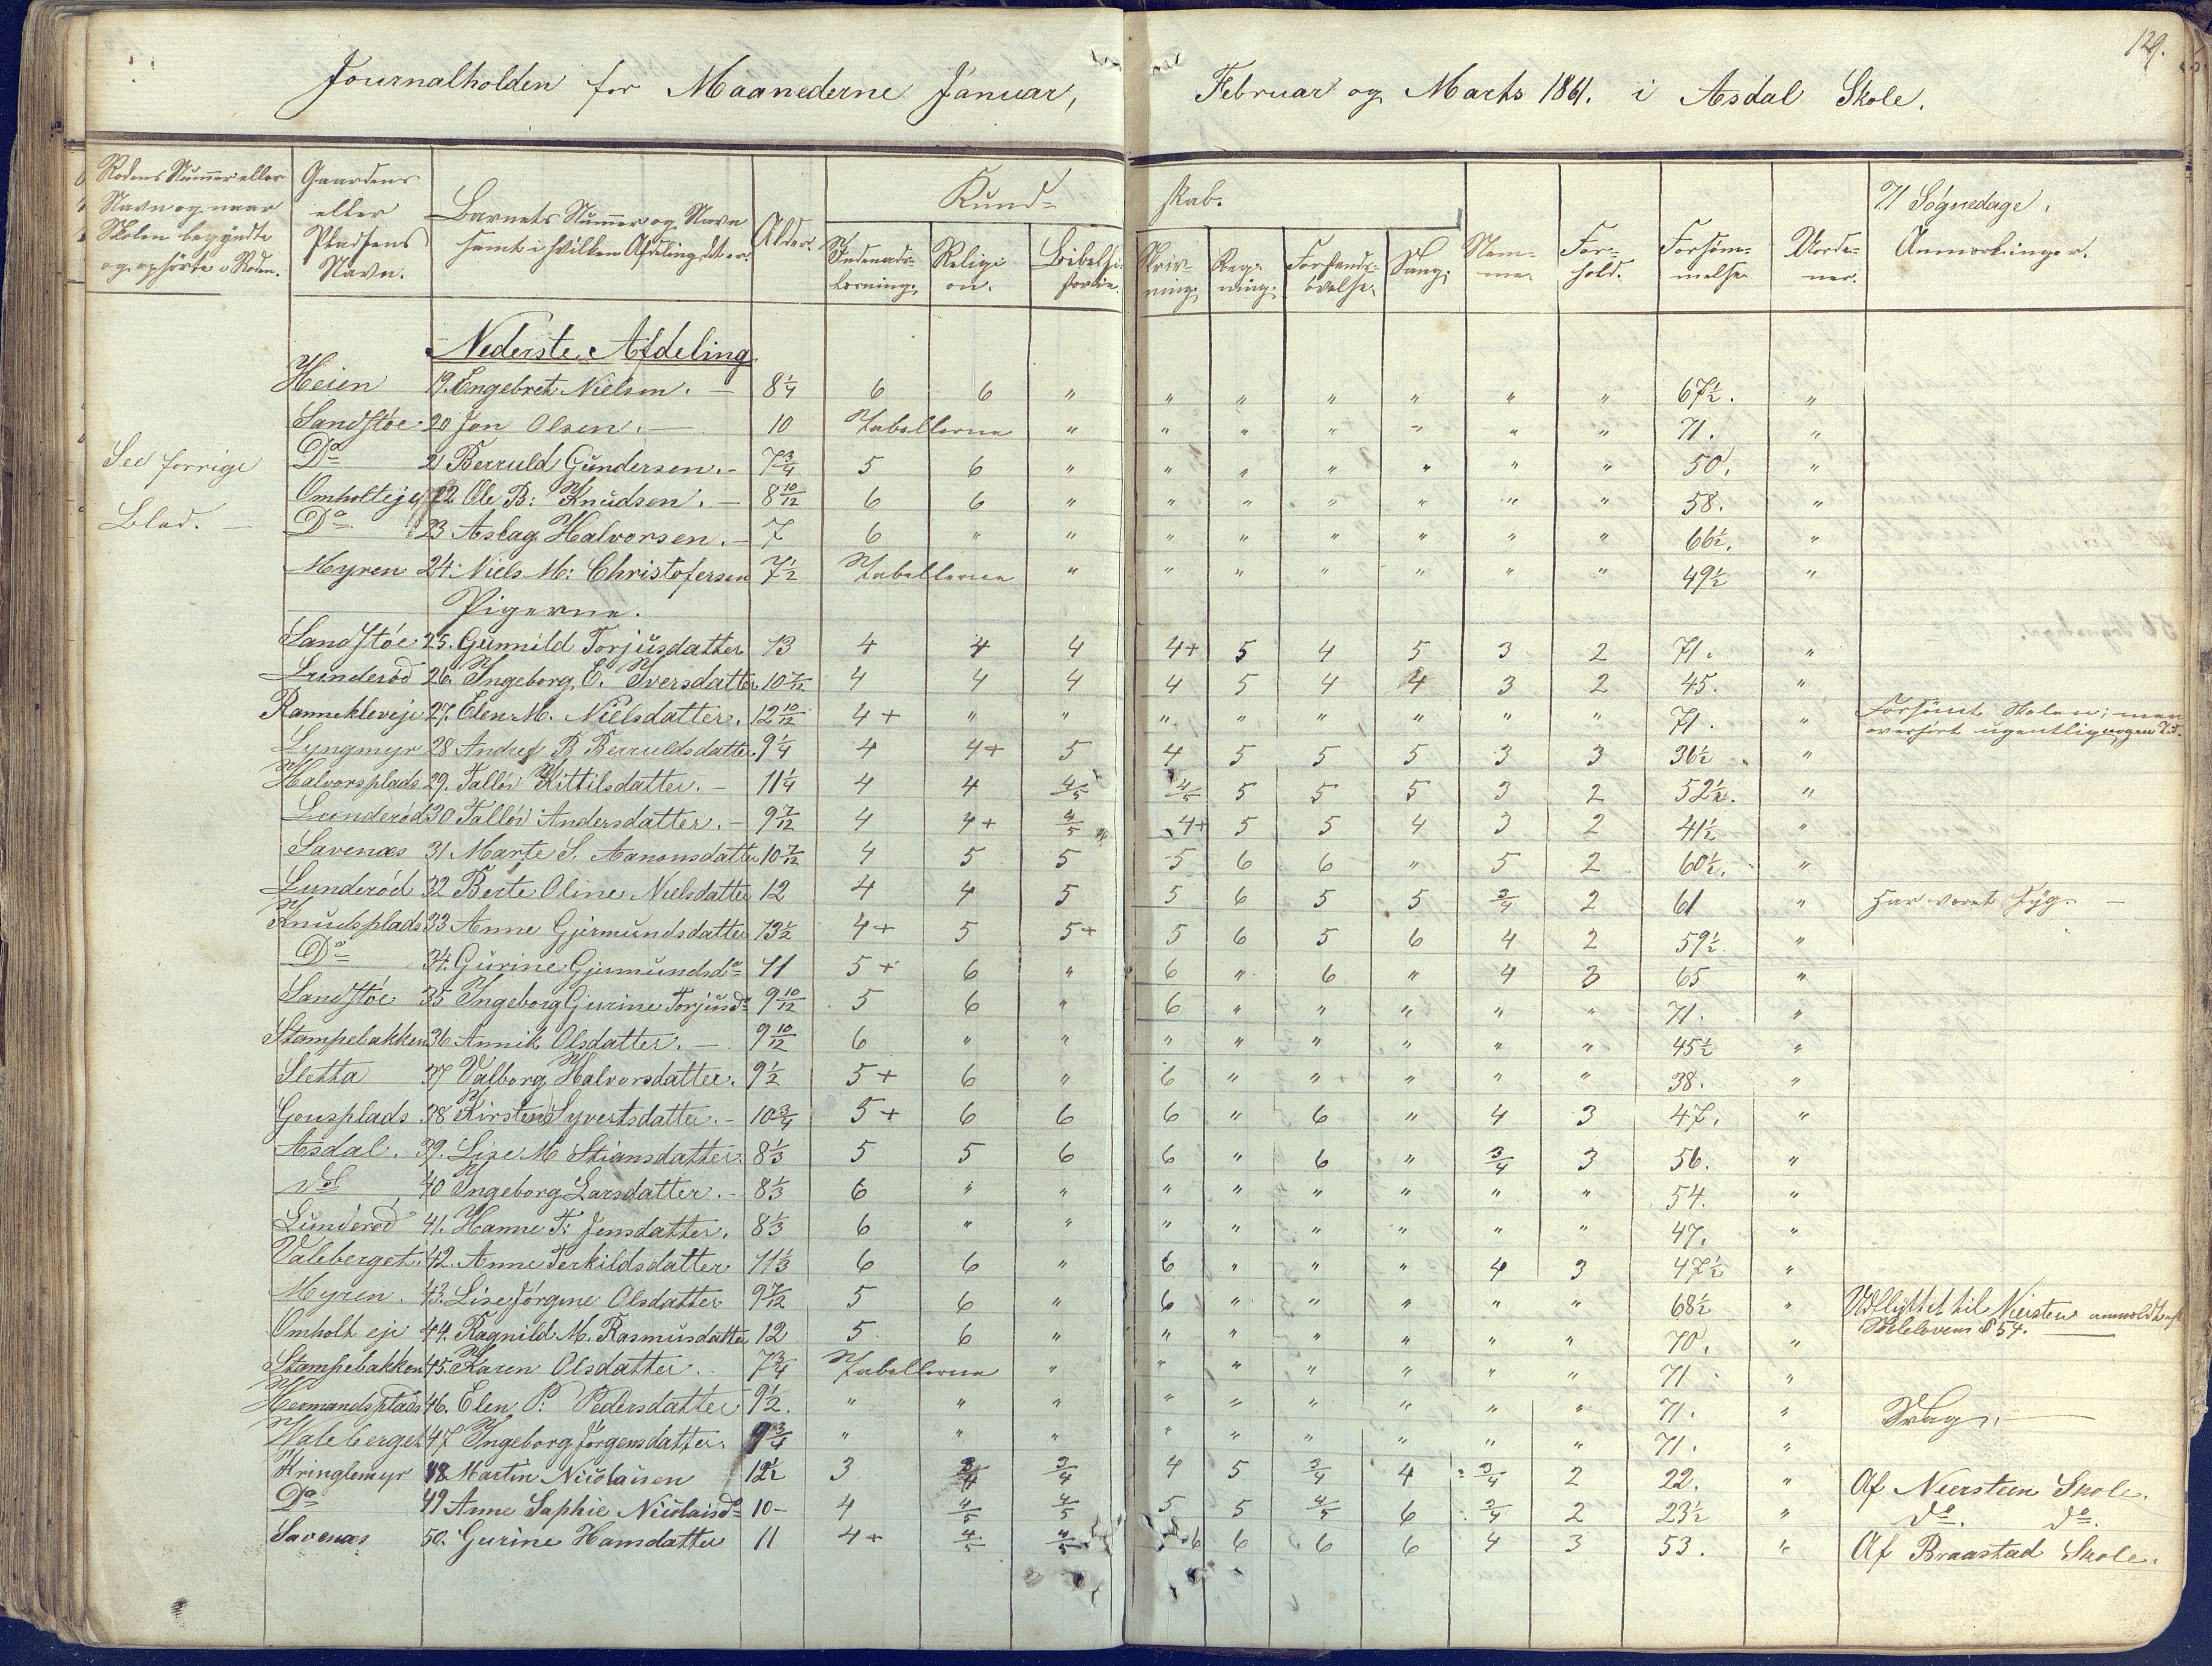 129.
Journalholden for Maanederne Januar, Februar og Marts 1861. i Asdal Skole.
Rodens Nummer eller Navn og naar Skolen begyndte og ophörte i Roden.
Gaardens eller Pladsens Navn.
Barnets Nummer og Navn samt i hvilken Afdeling det er.
Alder.
Kund- skab.
Indenads- læsning.
Religi on.
Bibelhi- storie.
Skriv- ning.
Reg- ning.
Forstands- övelse.
Sang.
Nem- me.
For- hold.
Forsöm- melse
Uorde- ner.
71 Sögnedage.
Anmærkninger.
See forrige
Blad. —
Nederste Afdeling
Heien 19. Engebret Nielsen. — 8¼ 6 6 " " " " " " " 67½. "
Sandstöe 20 Jon Olsen. — 10 Tabellerne " " " " " " " 71. "
Do 21 Berruld Gundersen. - 7¾ 5 6 " " " " " " " 50. "
Omholteje 22 Ole B: Knudsen. — 8 10/12 6 6 " " " " " " " 58. "
Do 23 Aslag Halvorsen. - 7 6 " " " " " " " " 66½. "
Myren 24. Niels M: Christofersen 7½ Tabellerne " " " " " " " 49½ "
Pigerne.
Sandstöe 25. Gunnild Torjusdatter 13 4 4 4 4+ 5 4 5 3 2 71. "
Lunderöd 26. Ingeborg E. Iversdatter 10 7/12 4 4 4 4 5 4 4 3 2 45. "
Rannekleveje 27. Elen M. Nielsdatter. 12 10/12 4+ " " " " " " " " 71. " Forsömt Skolen; men overhört ugentlig
Lyngmyr 28 Andrea B Berruldsdatter. 9¼ 4 4+ 5 4 5 5 5 3 3 36½ "
Halvorsplads 29. Tallöv Kittilsdatter. - 11¼ 4 4 4/5 4/5 5 5 5 3 2 52½. "
Lunderöd 30 Tallöv Andersdatter. - 9 7/12 4 4+ 4/5 4+ 5 5 4 3 2 41½ "
Savenæs 31 Marte S. Aanonsdatter 10 7/12 4 5 5 5 6 6 " 5 2 60½. "
Lunderöd 32 Berte Oline Nielsdatter 12 4 4 5 5 6 5 5 3/4 2 61 " Har været syg. —
Knudsplads 33 Anne Gjermundsdatter 13½ 4+ 5 5+ 5 6 5 6 4 2 59½ "
Do 34. Gurine Gjermundsdo 11 5+ 6 " 6 " 6 " 4 3 65 "
Sandstöe 35 Ingeborg Gurine Torjusdo 9 10/12 5 6 " 6 " " " " " 71. "
Stampebakken 36 Annik Olsdatter. — 9 10/12 6 " " " " " " " " 45½ "
Sletta 37 Valborg Halvorsdatter. 9½ 5+ 6 " 6 " " " " " 38. "
Gonsplads 38 Kirsten Syvertsdatter. - 10¾ 5+ 6 6 6 " 6 " 4 3 47. "
Asdal. 39. Lise M Stiansdatter. 8⅓ 5 5 6 6 " 6 " 3/4 3 56. "
do 40 Ingeborg Larsdatter. - 8⅓ 6 " " " " " " " " 54. "
Lunderöd 41. Hanne T: Jensdatter. 8⅓ 6 " " " " " " " " 47. "
Valeberget. 42. Anne Terkildsdatter 11⅓ 6 6 " 6 " " " 4 3 47½ "
Myren. 43. Lise Jörgine Olsdatter 9 7/12 5 6 " 6 " " " " " 68½ " Udflyttet til Niersten anmeldt
Omholt eje 44. Ragnild M. Rasmusdatter 12 5 6 " " " " " " " 70. " Skolelovens § 54.
Stampebakken 45. Karen Olsdatter. 7¾ Tabellerne " " " " " " " 71 "
Hermandsplads 46. Elen P: Pedersdatter 9½. " " " " " " " " " 71. " Svag. —
Valeberget 47 Ingeborg Jörgensdatter. 9¾ " " " " " " " " " 71. "
Kringlemyr 48 Martin Nicolaisen 12½ 3 3/4 3/4 4 5 3/4 4 3/4 2 22. " Af Nierstein Skole.
Do 49 Anne Saphie Nicolaisdo 10- 4 4/5 4/5 5 5 4/5 6 3/4 2 23½ " do. do.
Savenæs 50. Gurine Hansdatter 11 4+ 4/5 4/5 6 6 6 6 4 3 53. " Af Braastad Skole.